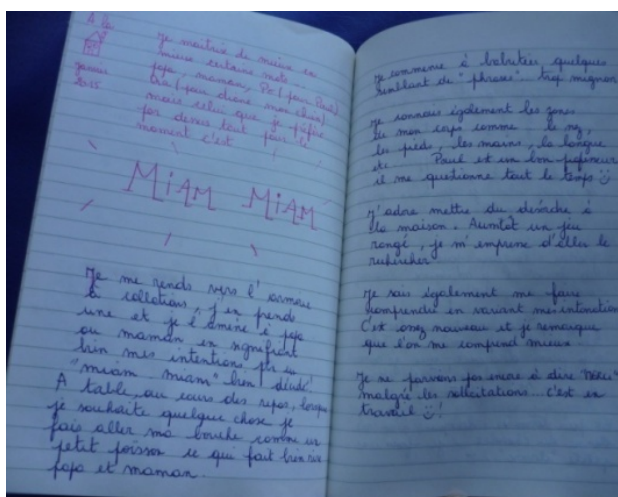 A la
Janvier
2015
Je maitrise de mieux en
mieux certains mots...
papa, maman, Po (pour Paul)
Dia (pour diane mon chien)
mais celui que je préfère
par dessus tout pour le
moment c'est
MiAM MiAM
Je me rends vers l'armoire
à collations, j'en prends
une et je l'amène à papa
ou maman en signifiant
bien mes intentions par un
"miam miam" bien décidé!
A table, au cours des repas, lorsque
je souhaite quelque chose je
fais aller ma bouche comme un
petit poisson ce qui fait bien rire
papa et maman.
Je commence à babutier quelques
semblant de "phrases"... trop mignon
Je connais également les zones
de mon corps comme le nez,
les pieds, les mains, la langue
etc... Paul est un bon professeur
il me questionne tout le temps
J'adore mettre du désordre à
la maison. Aussitôt un jeu
rangé, je m'empresse d'aller le
rechercher
Je sais également me faire
comprendre en variant mes intonations
C'est assez nouveau et je remarque
que l'on me comprend mieux.
Je ne parviens pas encore à dire
malgré les sollicitations... c'est en
travail !